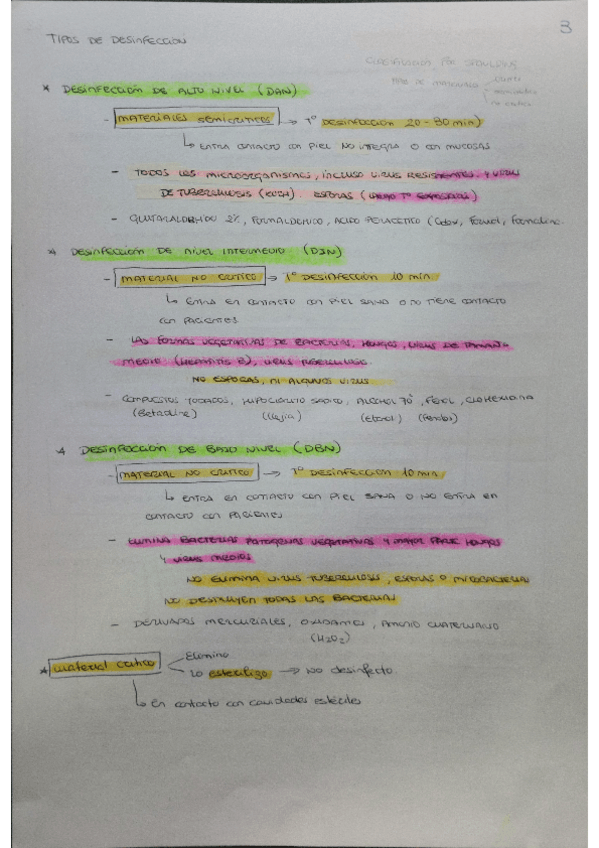 3
TIPOS DE DESINFECCIÓN
CLASIFICACIÓN POR SPAULDING
TIPOS DE MATERIALES
* DESINFECCIÓN DE ALTO NIVEL (DAN)
- MATERIALES SEMICRITICOS → Tº DESINFECCIÓN 20-30 min)
↳ ENTRA CONTACTO CON PIEL NO INTEGRA O CON MUCOSAS
- TODOS LOS MICROORGANISMOS, INCLUSO VIRUS RESISTENTES, Y VIRUS
DE TUBERCULOSIS ESPORAS
- GLUTARALDEHIDO 2%, FORMALDEHIDO, ACIDO PERACETICO (Cidex, Formol, Formalina.
* DESINFECCIÓN DE NIVEL INTERMEDIO (DIN)
- MATERIAL NO CRITICO → Tº DESINFECCIÓN 10 min.
↳ ENTRA EN CONTACTO CON PIEL SANA O NO TIENE CONTACTO
CON PACIENTES
- LAS FORMAS VEGETATIVAS DE BACTERIAS, HONGOS, VIRUS DE TAMAÑO
MEDIO (HEPATITIS B), VIRUS TUBERCULOSO.
NO ESPORAS, NI ALGUNOS VIRUS
- COMPUESTOS YODADOS, HIPOCLORITO SODICO, ALCOHOL 70º, FENOL, CLOHEXIDINA
(Betadine) (Lejía) (Etanol)
* DESINFECCIÓN DE BAJO NIVEL (DBN)
- MATERIAL NO CRITICO → Tº DESINFECCIÓN 10 min
↳ ENTRA EN CONTACTO CON PIEL SANA O NO ENTRA EN
CONTACTO CON PACIENTES
- ELIMINA BACTERIAS PATOGENAS VEGETATIVAS Y MAYOR PARTE HONGOS
Y VIRUS MEDIOS
NO ELIMINA VIRUS TUBERCULOSIS, ESPORAS O MICOBACTERIAS
NO DESTRUYEN TODAS LAS BACTERIAS
- DERIVADOS MERCURIALES, OXIDANTES, AMONIO CUATERNARIO
(H₂O₂)
* material critico Elimino
Lo esterilizo → No desinfecto.
↳ En contacto con cavidades estériles